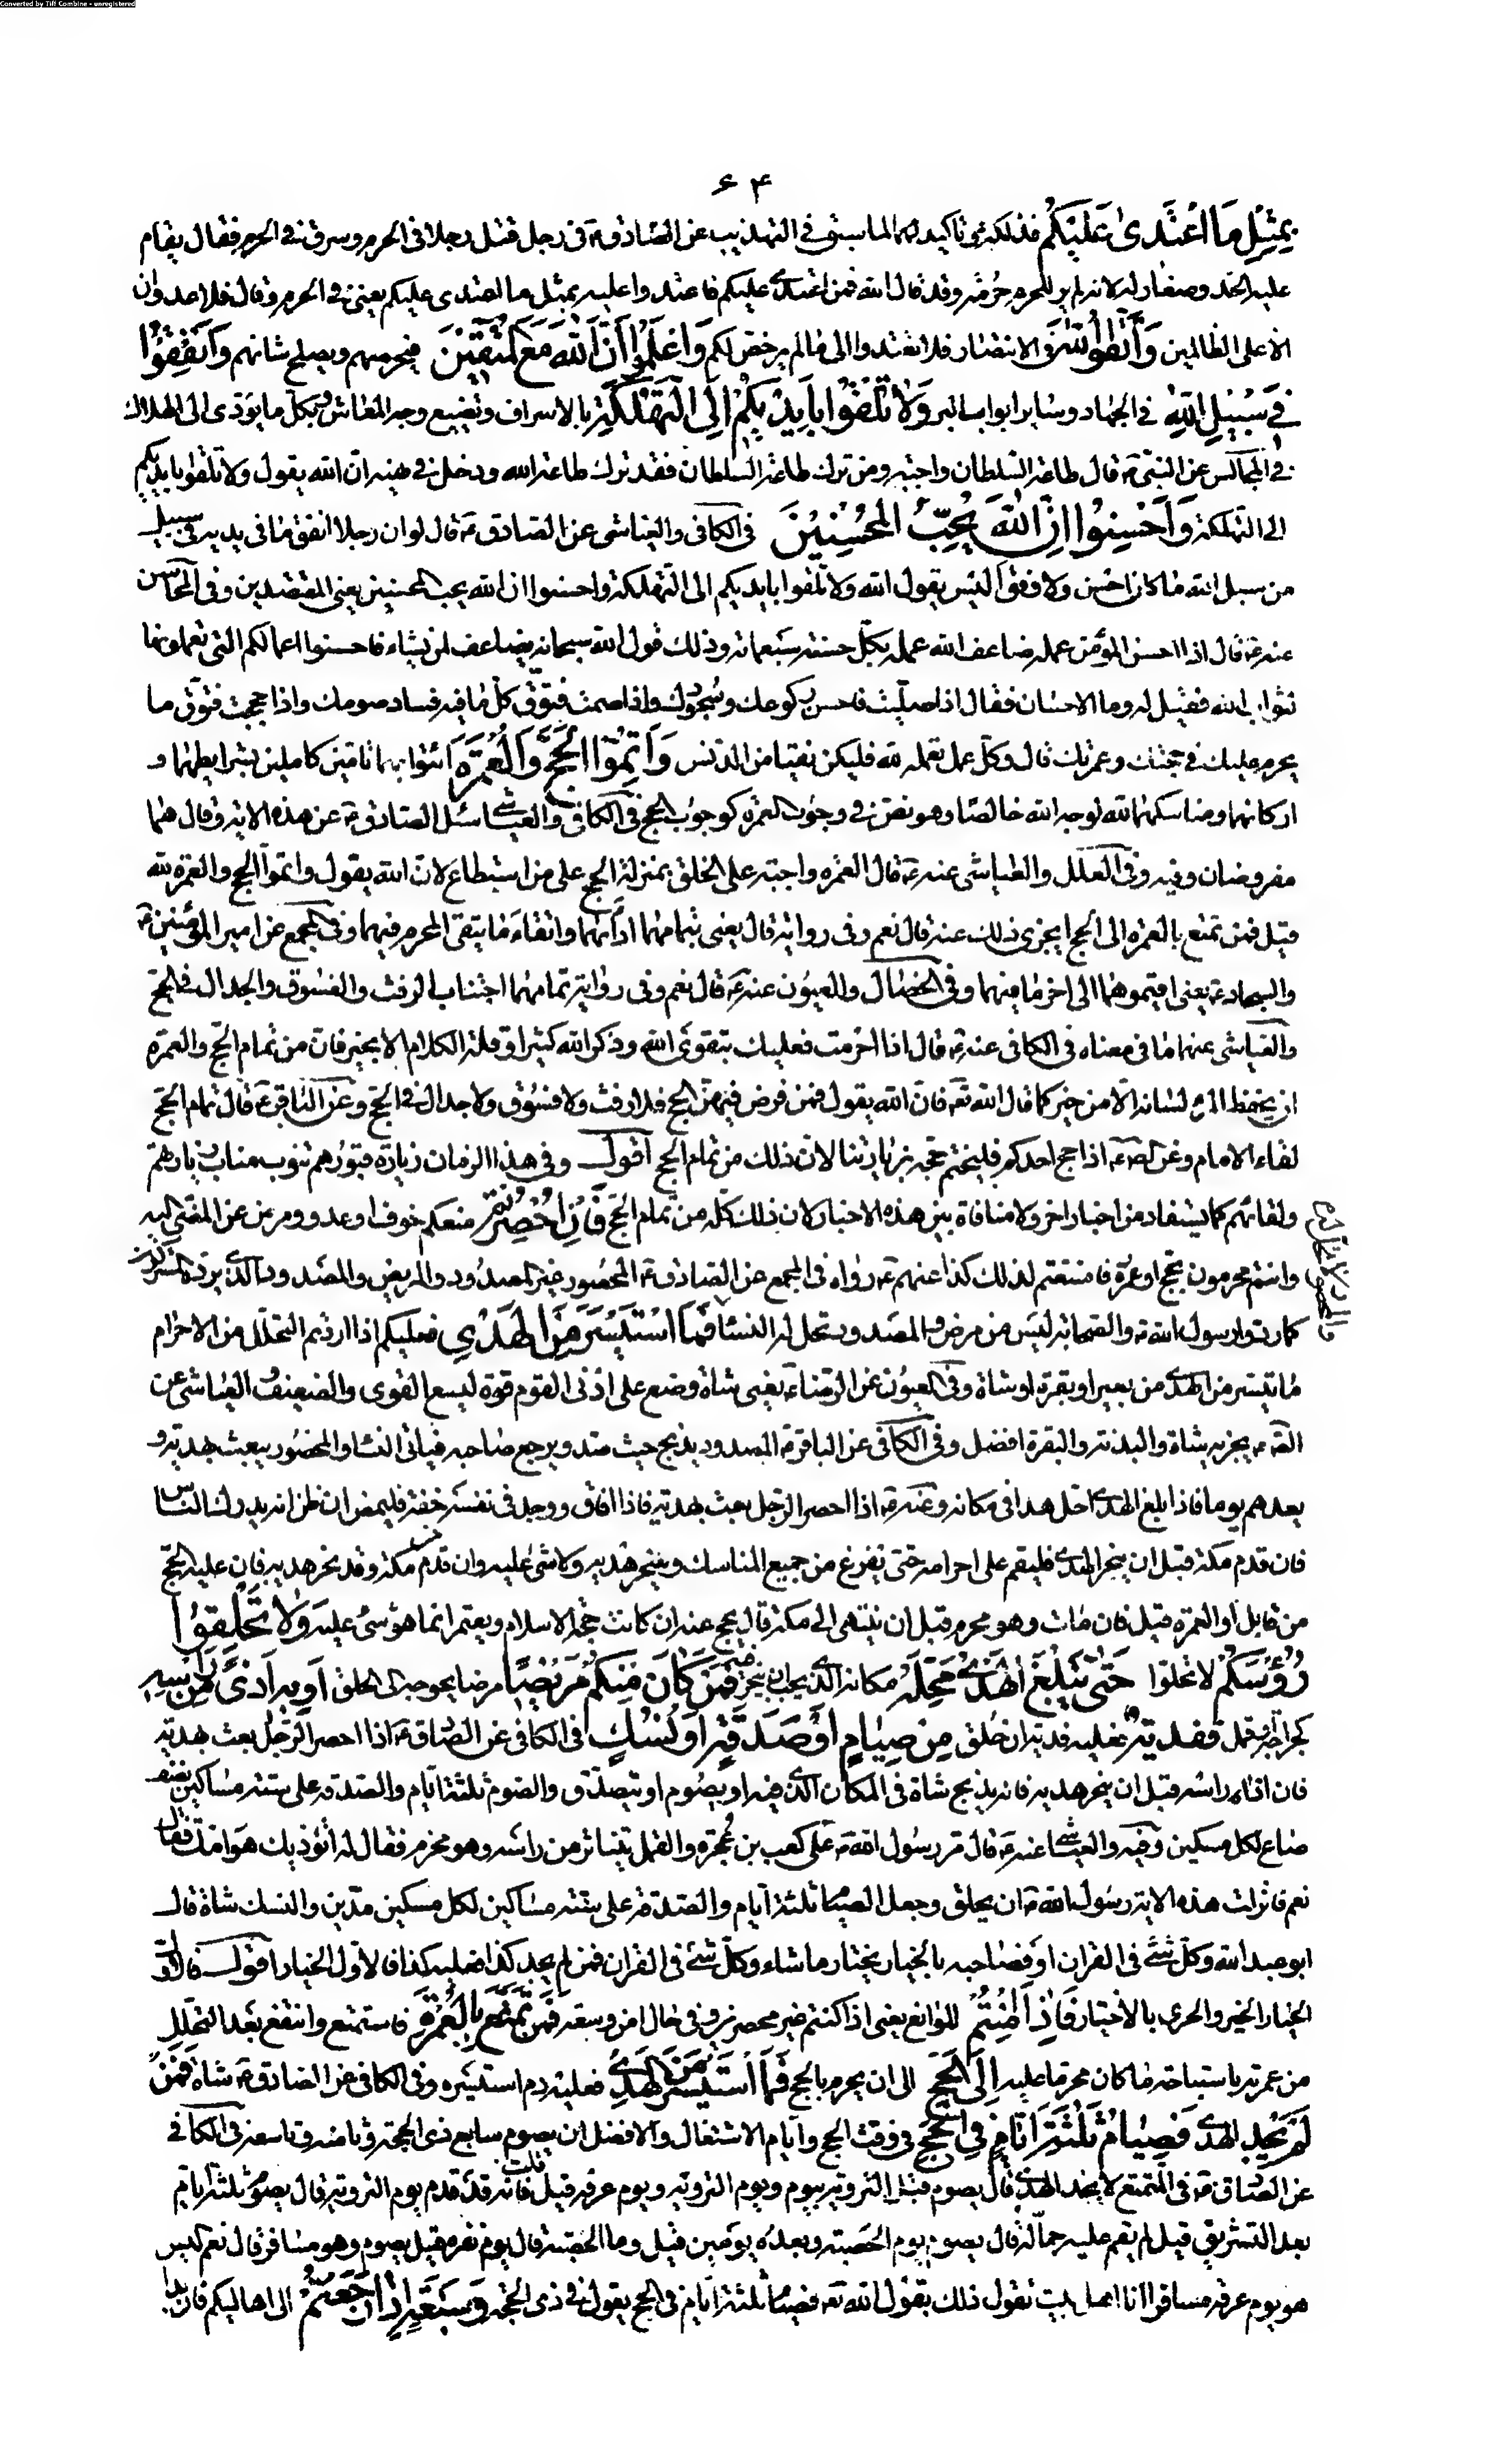 Converted by Tiff Combine - unregistered
۶۴
بِمِثْلِ مَا اعْتَدىٰ عَلَيْكُمْ فذلكة وتاكيد لما سبق في التهذيب عن الصّادق ع في رجل قتل رجلا في الحرم وسرق في الحرم فقال يقام
عليه الحد وصغار له لانه لم ير للحرم حرمة وقد قال الله فمن اعتدى عليكم فاعتدوا عليه بمثل ما اعتدى عليكم يعني في الحرم وقال فلا عدوان
الا على الظالمين وَاتَّقُوا اللّٰهَ في الانتصار فلا تعتدوا الى ما لم يرخص لكم وَاعْلَمُوا أَنَّ اللّٰهَ مَعَ الْمُتَّقِينَ فيحرسهم ويصلح شانهم وَأَنْفِقُوا
فِي سَبِيلِ اللّٰهِ في الجهاد وساير ابواب البر وَلاٰ تُلْقُوا بِأَيْدِيكُمْ إِلَى التَّهْلُكَةِ بالاسراف وتضييع وجه المعاش وبكلّ ما يؤدى الى الهلاك
في المجالس عن النبيّ ص قال طاعة السّلطان واجبة ومن ترك طاعة السلطان فقد ترك طاعة الله ودخل في نهيه انّ الله يقول ولا تلقوا بايديكم
الى التهلكة وَأَحْسِنُوا إِنَّ اللّٰهَ يُحِبُّ الْمُحْسِنِينَ في الكافي والعيّاشي عن الصادق ع قال لو ان رجلا انفق ما في يديه في سبيل
من سبل الله ما كان احسن ولا وفق اليس يقول الله ولا تلقوا بايديكم الى التهلكة واحسنوا ان الله يحب المحسنين يعني المقتصدين وفي المحاسن
عنه ع قال اذا احسن المؤمن عمله ضاعف الله عمله بكلّ حسنة سبعمائة وذلك قول الله سبحانه يضاعف لمن يشاء فاحسنوا اعمالكم التي تعملونها
لثواب الله فقيل له وما الاحسان فقال اذا صليت فاحسن ركوعك وسجودك واذا صمت فتوقّ كلّ ما فيه فساد صومك واذا حججت فتوقّ ما
يحرم عليك في حجتك وعمرتك قال وكلّ عمل تعمله لله فليكن نقيا من الدنس وَأَتِمُّوا الْحَجَّ وَالْعُمْرَةَ ائتوا بهما تامّين كاملين بشرايطهما و
اركانهما ومناسكهما لله لوجه الله خالصا وهو نصّ في وجوب العمرة كوجوب الحج في الكافي والعيّاشي سئل الصّادق ع عن هذه الاية فقال هما
مفروضان وفيه وفي العلل والعيّاشي عنه ع قال العمرة واجبة على الخلق بمنزلة الحج على من استطاع لانّ الله يقول واتموا الحج والعمرة لله
قيل فمن تمتع بالعمرة الى الحج ايجزي ذلك عنه قال نعم وفي رواية قال يعني بتمامهما اداءهما واتقاء ما يتقى المحرم فيهما وفي المجمع عن امير المؤمنين ع
والسجاد ع يعني اقيموهما الى اخر ما فيهما وفي الخصال والعيون عنه ع قال نعم وفي رواية تمامهما اجتناب الرفث والفسوق والجدال في الحجّ
والعيّاشي عنهما ما في معناه في الكافي عنه ع قال اذا احرمت فعليك بتقوى الله وذكر الله كثيرا وقلة الكلام الا بخير فانّ من تمام الحجّ والعمرة
ان يحفظ المرء لسانه الّا من خير كما قال الله تع فانّ الله يقول فمن فرض فيهنّ الحج فلا رفث ولا فسوق ولا جدال في الحجّ وعن الباقر ع قال تمام الحجّ
لقاء الامام وعن الصّ ع اذا حج احدكم فليختم حجه بزيارتنا لان ذلك من تمام الحج اقول وفي هذا الزمان زيارة قبورهم تنوب مناب زيارتهم
ولقائهم كما يستفاد من اخبار اخر ولا منافاة بين هذه الاخبار لان ذلك كلّه من تمام الحج فَإِنْ أُحْصِرْتُمْ منعكم خوف او عدو ومرض عن المضي اليه
وانتم محرمون بحج او عمرة فامتنعتم لذلك كذا عنهم ع رواه في المجمع عن الصّادق ع المحصور غير المصدود والمريض والمصدود الّذي يردّه المشركون
كما ردوا رسول الله ص والصحابة ليس من مرض والمصدود تحل له النساء فَمَا اسْتَيْسَرَ مِنَ الْهَدْيِ فعليكم اذا اردتم التحلل من الاحرام
ما تيسّر من الهدى من بعير او بقرة او شاة وفي العيون عن الرّضا ع يعني شاة وضع على ادنى القوم قوة ليسع القوى والضعيف العيّاشي عن
الصّ ع يجزيه شاة والبدنة والبقرة افضل وفي الكافي عن الباقر ع المصدود يذبح حيث صد ويرجع صاحبه فياتي النساء والمحصور يبعث بهديه و
يعدهم يوما فاذا بلغ الهدى احل هذا في مكانه وعنه ع اذا احصر الرّجل بعث بهديه فاذا افاق ووجد في نفسه خفة فليمض ان ظن انه يدرك الناس
فان قدم مكة قبل ان ينحر الهدى فليقم على احرامه حتى يفرغ من جميع المناسك وينحر هديه ولا شيء عليه وان قدم مكة وقد نحر هديه فان عليه الحجّ
من قابل او العمرة قيل فان مات وهو محرم قبل ان ينتهى الى مكة قال يحج عنه ان كانت حجة الاسلام ويعتمر انما هو شيء عليه وَلاٰ تَحْلِقُوا
رُؤُسَكُمْ لا تحلوا حَتّٰى يَبْلُغَ الْهَدْيُ مَحِلَّهُ مكانه الّذي يجب ان ينحر فيه فَمَنْ كَانَ مِنْكُمْ مَرِيضًا مرضا يحوجه الى الحلق أَوْ بِهِ أَذًى مِنْ رَأْسِهِ
كجراحة وقمل فَفِدْيَةٌ فعليه فدية ان حلق مِنْ صِيٰامٍ أَوْ صَدَقَةٍ أَوْ نُسُكٍ في الكافي عن الصّادق ع اذا احصر الرّجل بعث بهديه
فان اذاه راسه قبل ان ينحر هديه فانه يذبح شاة في المكان الّذي فيه او يصوم او يتصدّق والصوم ثلثة ايّام والصدقة على ستة مساكين نصف
صاع لكل مسكين وفيه والعيّاشي عنه ع قال مرّ رسول الله ص على كعب بن عجرة والقمل يتناثر من راسه وهو محرم فقال له اتؤذيك هوامّك فقال
نعم فانزلت هذه الاية رسول الله ص ان يحلق وجعل الصيام ثلثة ايام والصدقة على ستة مساكين لكل مسكين مدّين والنسك شاة قال
ابو عبد الله وكلّ شيء في القران او فصاحبه بالخيار يختار ما شاء وكلّ شيء في القران فمن لم يجد كذا فعليه كذا فالاوّل الخيار اقول فالاوّل
الخيار الخير والحرى بالاختيار فَإِذَا أَمِنْتُمْ الموانع يعني اذا كنتم غير محصرين وفي حال امن وسعة فَمَنْ تَمَتَّعَ بِالْعُمْرَةِ فاستمتع وانتفع بعد التحلل
من عمرته باستباحة ما كان محرما عليه إِلَى الْحَجِّ الى ان يحرم بالحج فَمَا اسْتَيْسَرَ مِنَ الْهَدْيِ فعليه دم استيسره وفي الكافي عن الصّادق ع شاة فَمَنْ
لَمْ يَجِدْ الهدى فَصِيٰامُ ثَلٰثَةِ أَيّٰامٍ فِي الْحَجِّ في وقت الحج وايّام الاشتغال والافضل ان يصوم سابع ذي الحجة وثامنه وتاسعه في الكافي
عن الصّادق ع في المتمتع لا يجد الهدى قال يصوم قبل التروية بيوم ويوم التروية ويوم عرفة قيل فانه قد قدم يوم التروية قال يصوم ثلثة ايام
بعد التشريق قيل لم يقم عليه جمّاله قال يصوم يوم الحصبة وبعده يومين قيل وما الحصبة قال يوم نفره قيل يصوم وهو مسافر قال نعم اليس
هو يوم عرفة مسافرا انا اهل بيت نقول ذلك بقول الله تع فصيام ثلثة ايام في الحج يقول في ذي الحجة وَسَبْعَةٍ إِذَا رَجَعْتُمْ الى اهاليكم فان بدا